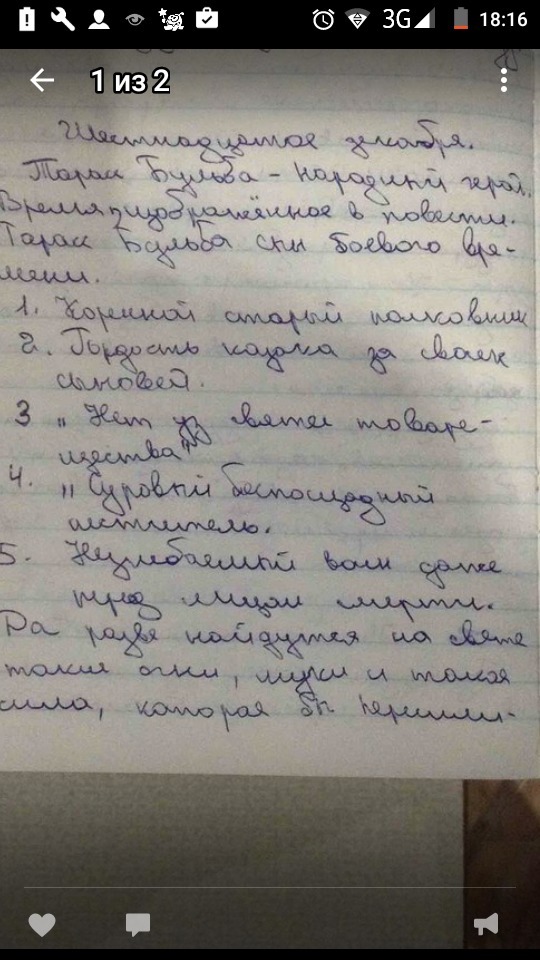 3G 18:16
1 из 2
Шестнадцатое декабря.
Тарас Бульба - народный герой.
Время изображённое в повести.
Тарас Бульба сын боевого вре-
мени.
1. Коренной старый полковник
2. Гордость казака за своих
сыновей.
3 „Нет уз святее товари-
щества"
4. „Суровый беспощадный
мститель.
5. Незыблемый воин даже
перед лицом смерти.
Да разве найдутся на свете
такие огни, муки и такая
сила, которая бы пересили-